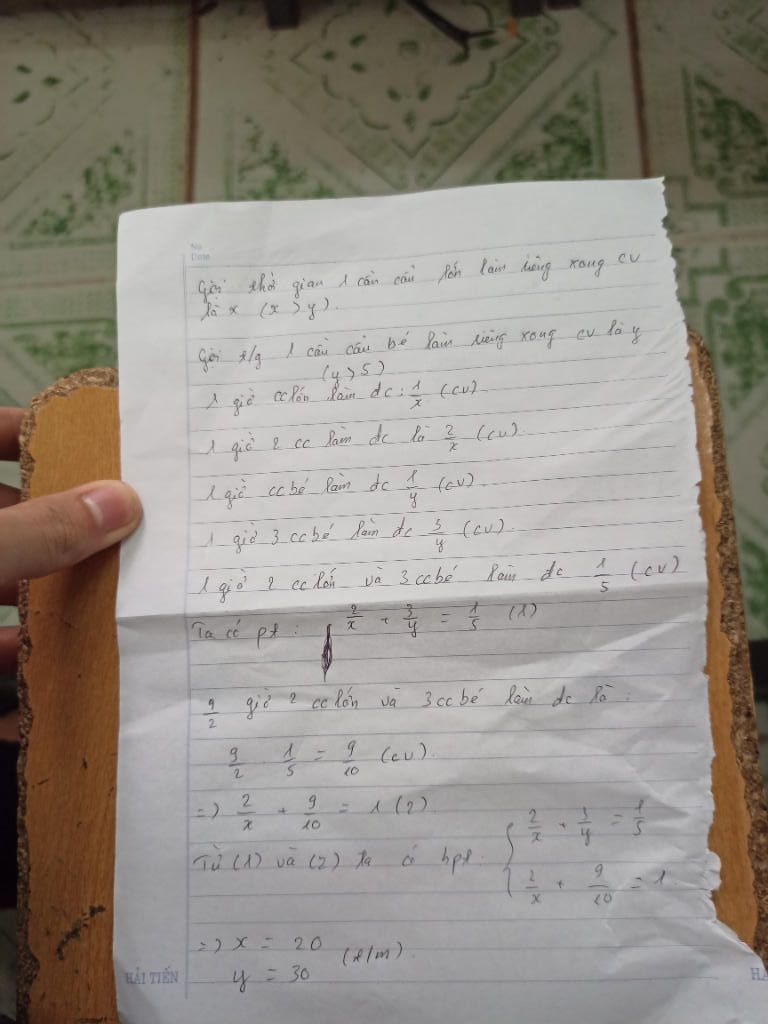 No
Date
Gọi thời gian 1 cần cẩu lớn làm riêng xong cv
là x (x > y).
Gọi t/g 1 cần cẩu bé làm riêng xong cv là y
(y > 5)
1 giờ cc lớn làm dc: 1/x (cv)
1 giờ 2 cc làm dc là 2/x (cv).
1 giờ cc bé làm dc 1/y (cv)
1 giờ 3 cc bé làm dc 3/y (cv).
1 giờ 2 cc lớn và 3 cc bé làm dc 1/5 (cv)
Ta có pt: 2/x + 3/y = 1/5 (1)
9/2 giờ 2 cc lớn và 3 cc bé làm dc là:
9/2 . 1/5 = 9/10 (cv).
=> 2/x + 9/10 = 1 (2)
Từ (1) và (2) ta có hpt: { 2/x + 3/y = 1/5
2/x + 9/10 = 1.
=> x = 20
y = 30 (t/m).
HẢI TIẾN